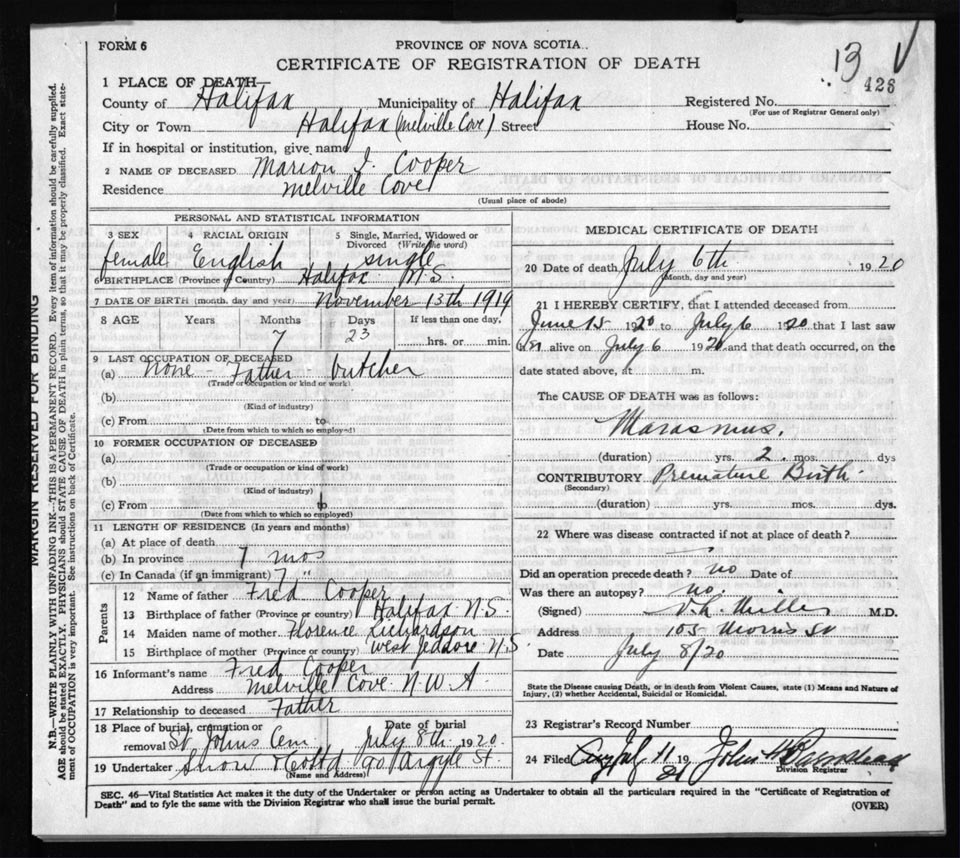 FORM 6
PROVINCE OF NOVA SCOTIA.
CERTIFICATE OF REGISTRATION OF DEATH
13
428
1 PLACE OF DEATH—
County of Halifax Municipality of Halifax Registered No.
(For use of Registrar General only)
City or Town Halifax (Melville Cove) Street House No.
If in hospital or institution, give name
2 NAME OF DECEASED Marion I. Cooper
Residence Melville Cove
(Usual place of abode)
PERSONAL AND STATISTICAL INFORMATION
3 SEX 4 RACIAL ORIGIN 5 Single, Married, Widowed or Divorced (Write the word)
female English single
6 BIRTHPLACE (Province or Country) Halifax N.S.
7 DATE OF BIRTH (month, day and year) November 13th 1919
8 AGE Years Months Days If less than one day,
7 23 hrs. or min.
9 LAST OCCUPATION OF DECEASED
(a) None - Father - butcher
(Trade or occupation or kind or work)
(b)
(Kind of industry)
(c) From to
(Date from which to which so employed)
10 FORMER OCCUPATION OF DECEASED
(a)
(Trade or occupation or kind of work)
(b)
(Kind of industry)
(c) From to
(Date from which to which so employed)
11 LENGTH OF RESIDENCE (In years and months)
(a) At place of death
(b) In province 7 mos
(c) In Canada (if an immigrant) 7 "
Parents
12 Name of father Fred Cooper
13 Birthplace of father (Province or country) Halifax N.S.
14 Maiden name of mother Florence Richardson
15 Birthplace of mother (Province or country) West Jeddore N.S
16 Informant's name Fred Cooper
Address Melville Cove N.W.A.
17 Relationship to deceased Father
18 Place of burial, cremation or removal St. Johns Cem Date of burial July 8th 1920
19 Undertaker Snow & Co Ltd 90 Argyle St.
(Name and Address)
MEDICAL CERTIFICATE OF DEATH
20 Date of death July 6th 1920
(Month, day and year)
21 I HEREBY CERTIFY, that I attended deceased from
June 15 1920 to July 6 1920 that I last saw
h er alive on July 6 1920 and that death occurred, on the
date stated above, at m.
The CAUSE OF DEATH was as follows:
Marasmus.
(duration) yrs. 2 mos. dys
CONTRIBUTORY Premature Birth
(Secondary)
(duration) yrs. mos. dys.
22 Where was disease contracted if not at place of death?
Did an operation precede death? no Date of
Was there an autopsy? no.
(Signed) Miller M.D.
Address 105 Morris St
Date July 8/20
State the Disease causing Death, or in death from Violent Causes, state (1) Means and Nature of
Injury, (2) whether Accidental, Suicidal or Homicidal.
23 Registrar's Record Number
24 Filed 11 19 John
Division Registrar
SEC. 46—Vital Statistics Act makes it the duty of the Undertaker or person acting as Undertaker to obtain all the particulars required in the "Certificate of Registration of
Death" and to fyle the same with the Division Registrar who shall issue the burial permit.
(OVER)
MARGIN RESERVED FOR BINDING
N.B.—WRITE PLAINLY WITH UNFADING INK—THIS IS A PERMANENT RECORD. Every item of information should be carefully supplied.
AGE should be stated EXACTLY. PHYSICIANS should STATE CAUSE OF DEATH in plain terms, so that it may be properly classified. Exact state-
ment of OCCUPATION is very important. See instructions on back of Certificate.